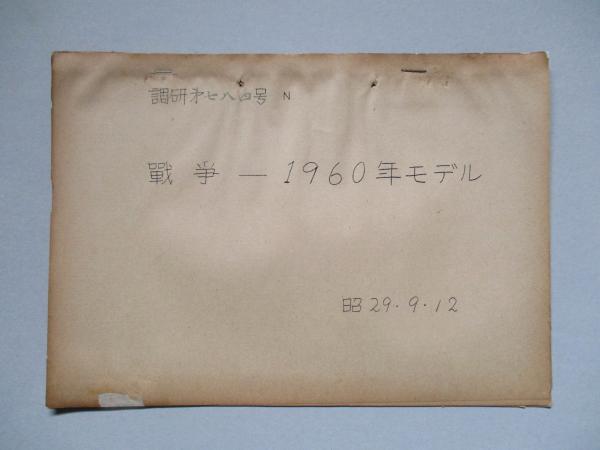 調研才七八四号 N
戰爭 — 1960年モデル
昭 29.9.12